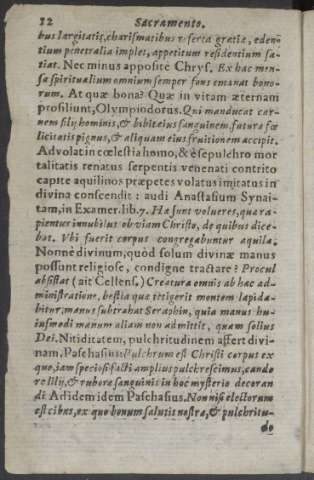 12 Sacramento.
bus largitatis, charismatibus referta gratia, eden-
tium penetralia implet, appetitum residentium sa-
tiat. Nec minus apposite Chrys. Ex hac men-
sa spiritualium omnium semper fons emanat bono-
rum. At quæ bona? Quæ in vitam æternam
profiliunt, Olympiodorus. Qui manducat car-
nem filij hominis, & bibit eius sanguinem, futuræ fœ
licitatis pignus, & aliquam eius fruitionem accipit.
Advolat in cœlestia homo, & è sepulchro mor
talitatis renatus serpentis venenati contrito
capite aquilinos præpetes volatus imitatus in
divina conscendit: audi Anastasium Synai-
tam, in Examer. lib. 7. Hæ sunt volucres, quæ ra-
pientur in nubibus obviam Christo, de quibus dice-
bat. Vbi fuerit corpus congregabuntur aquilæ.
Nonne divinum, quòd solum divinæ manus
possunt religiosè, condignè tractare? Procul
absistat (ait Cellens.) Creatura omnis ab hac ad-
ministratione, bestia quæ tetigerit montem lapida-
bitur, manus subtrahat Seraphin, quia manus hu-
iusmodi manum aliam non admittit, quam solius
Dei. Nitiditatem, pulchritudinem affert divi-
nam, Paschasius: Pulchrum est Christi corpus ex
quo, jam speciosi facti amplius pulchrescimus, cando
re lilij, & rubore sanguinis in hoc mysterio decoran
di Adidem idem Paschasius. Non nisi electorum
est cibus, ex quo bonum salutis nostræ, & pulchritu-
do